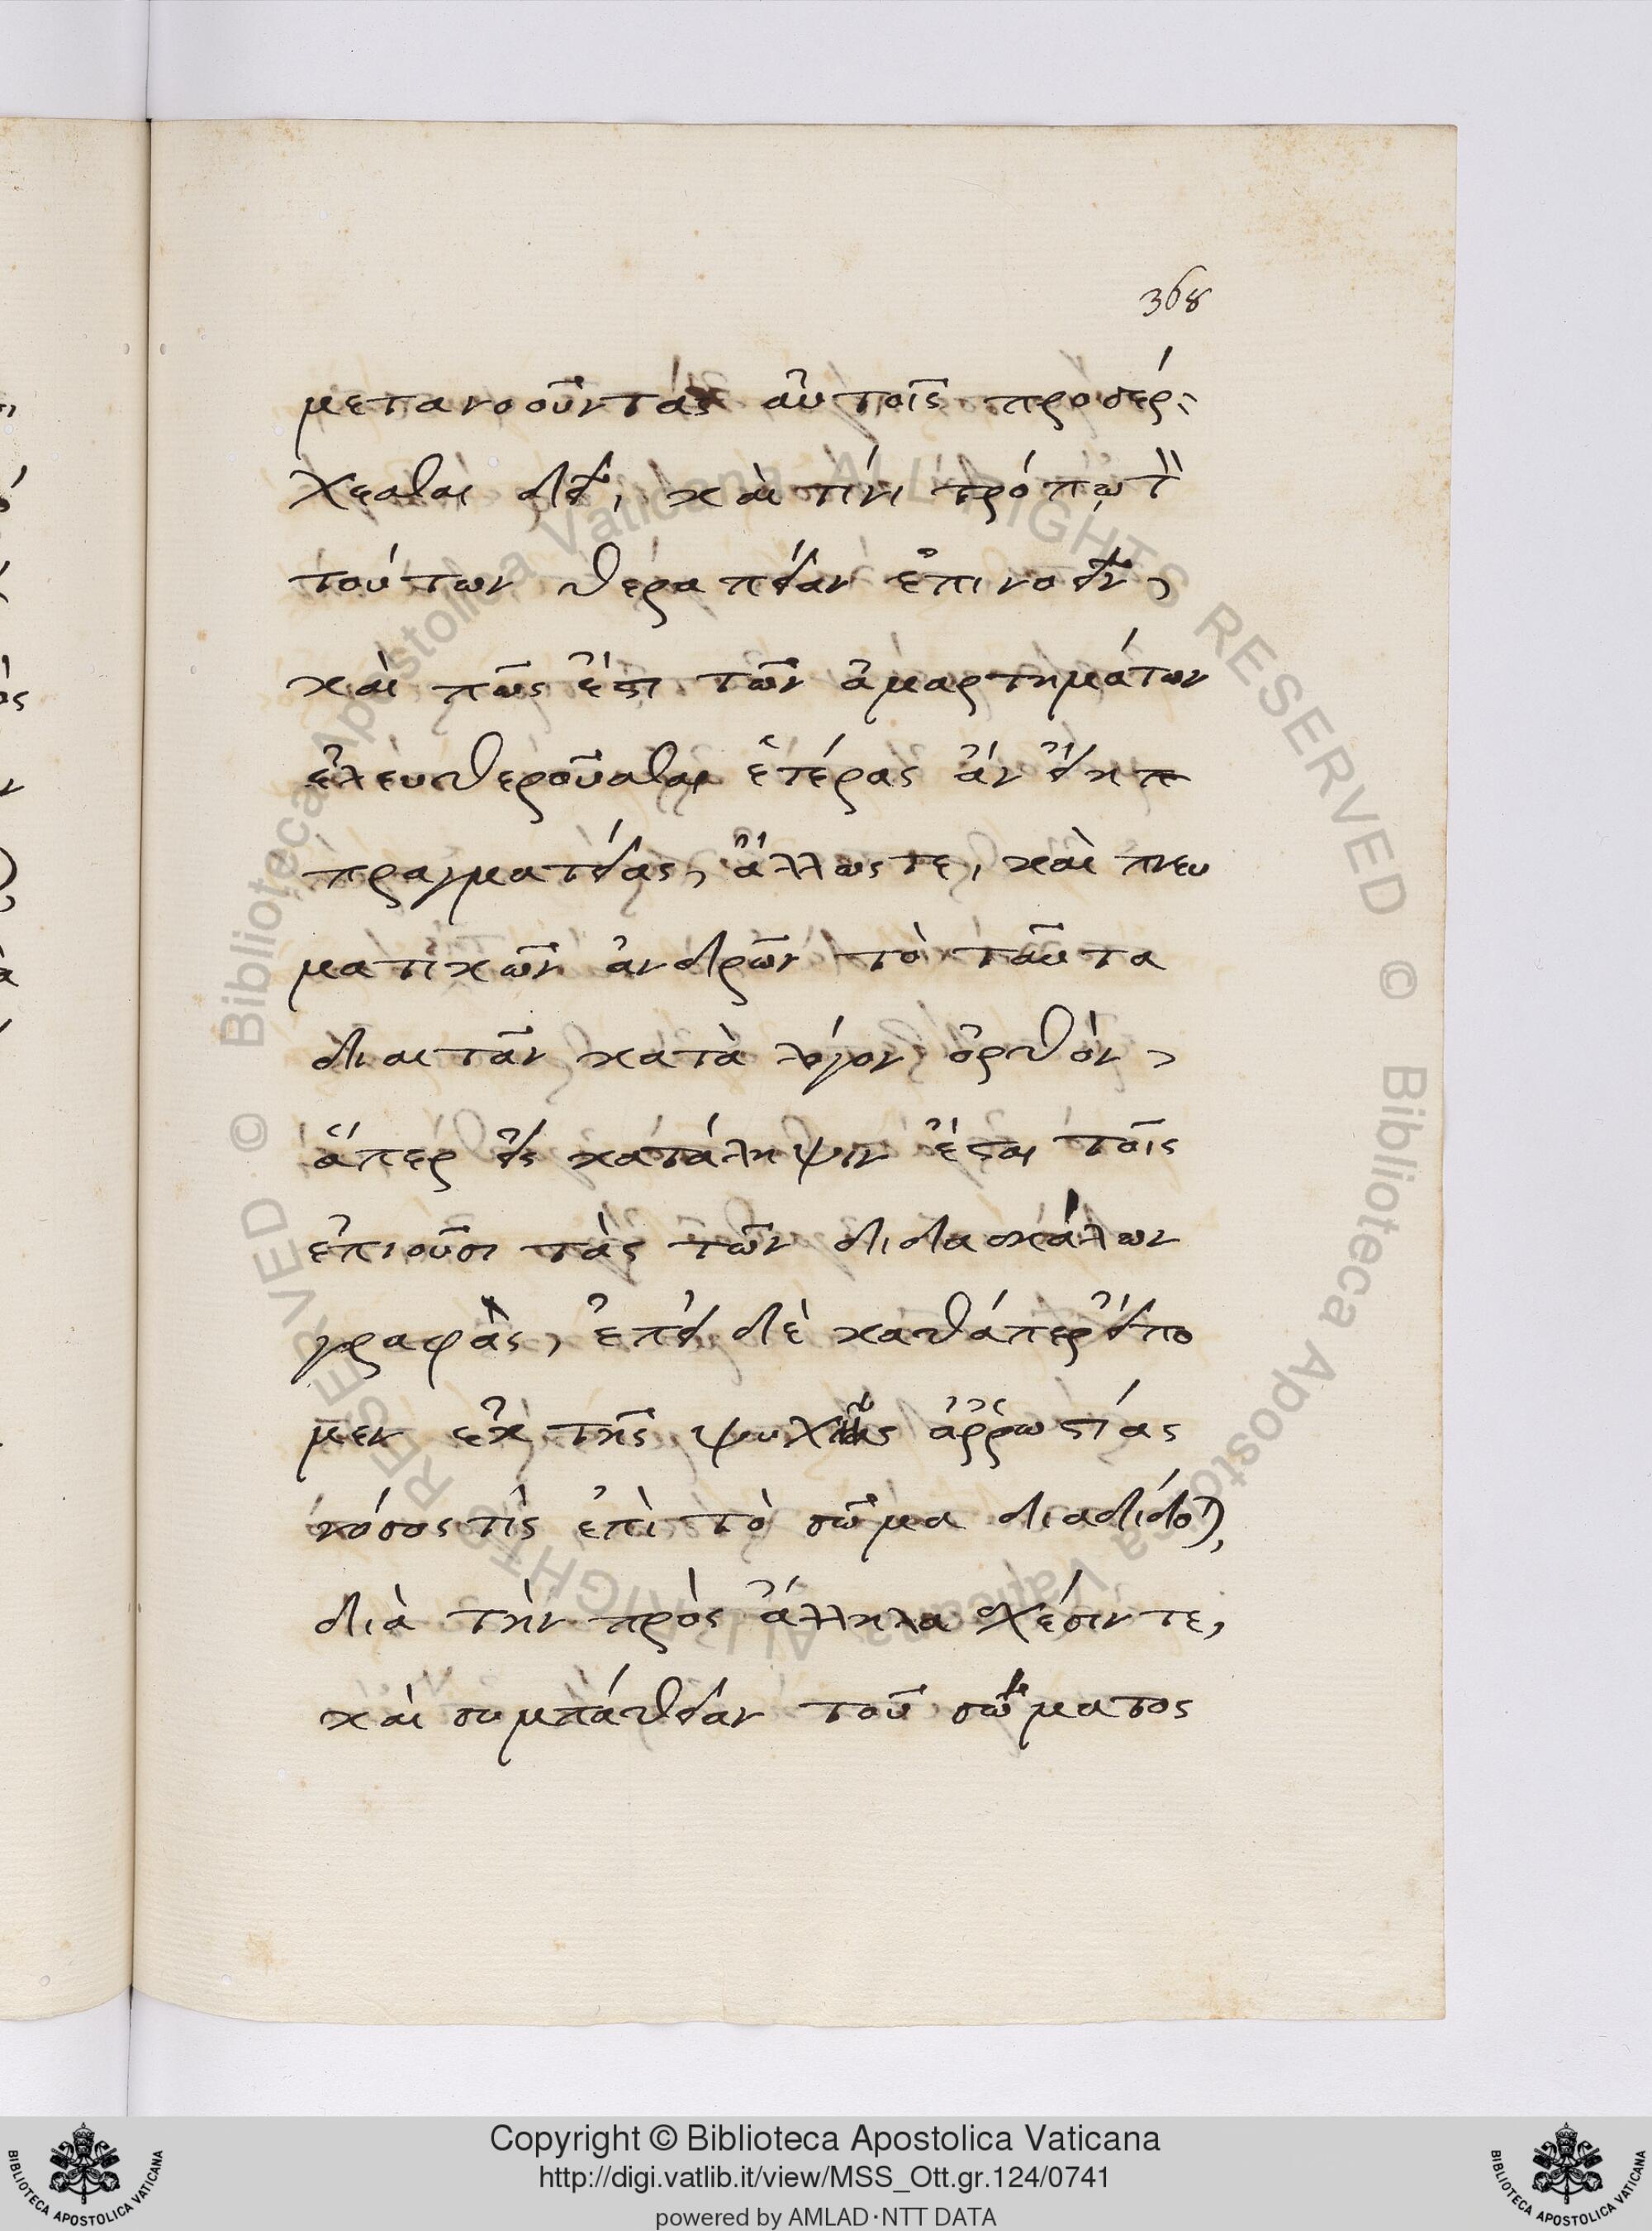 368
μετανοοῦντας αὐτοῖς προσέρ-
χεσθαι δεῖ, καὶ τίνι τρόπῳ τὴν
τούτων θεραπείαν ἐπινοεῖν,
καὶ πῶς ἔστι τῶν ἁμαρτημάτων
ἐλευθεροῦσθαι ἑτέρας ἂν εἴη
πραγματείας, ἄλλως τε, καὶ πνευ
ματικῶν ἀνδρῶν τὸ ταῦτα
διαιτᾶν κατὰ λόγον ὀρθὸν,
ἅπερ εἰς κατάληψιν ἔσται τοῖς
ἐπιοῦσι τὰς τῶν διδασκάλων
γραφὰς, ἐπεὶ δὲ καθάπερ εἴπο
μεν ἐκ τῆς ψυχῆς ἀῤῥωστίας
νόσος τὶς ἐπὶ τὸ σῶμα διαδίδοται,
διὰ τὴν πρὸς ἄλληλα σχέσιν τε,
καὶ συμπάθειαν τοῦ σώματος
Copyright © Biblioteca Apostolica Vaticana
http://digi.vatlib.it/view/MSS_Ott.gr.124/0741
powered by AMLAD·NTT DATA
BIBLIOTECA APOSTOLICA VATICANA
BIBLIOTECA APOSTOLICA VATICANA
© Biblioteca Apostolica Vaticana ALL RIGHTS RESERVED © Biblioteca Apostolica Vaticana ALL RIGHTS RESERVED